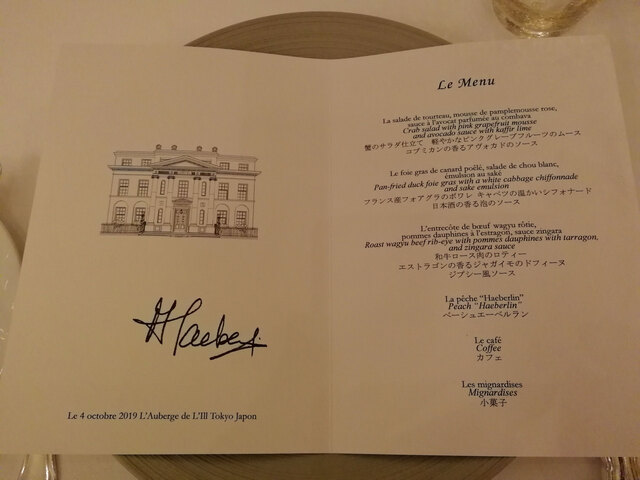 Haeberli
Le 4 octobre 2019 L'Auberge de L'Ill Tokyo Japon
Le Menu
La salade de tourteau, mousse de pamplemousse rose,
sauce à l'avocat parfumée au combava
Crab salad with pink grapefruit mousse
and avocado sauce with kaffir lime
蟹のサラダ仕立て 軽やかなピンクグレープフルーツのムース
コブミカンの香るアヴォカドのソース
Le foie gras de canard poêlé, salade de chou blanc,
émulsion au saké
Pan-fried duck foie gras with a white cabbage chiffonnade
and sake emulsion
フランス産フォアグラのポワレ キャベツの温かいシフォナード
日本酒の香る泡のソース
L'entrecôte de bœuf wagyu rôtie,
pommes dauphines à l'estragon, sauce zingara
Roast wagyu beef rib-eye with pommes dauphines with tarragon,
and zingara sauce
和牛ロース肉のロティー
エストラゴンの香るジャガイモのドフィーヌ
ジプシー風ソース
La pêche "Haeberlin"
Peach "Haeberlin"
ペーシュエーベルラン
Le café
Coffee
カフェ
Les mignardises
Mignardises
小菓子